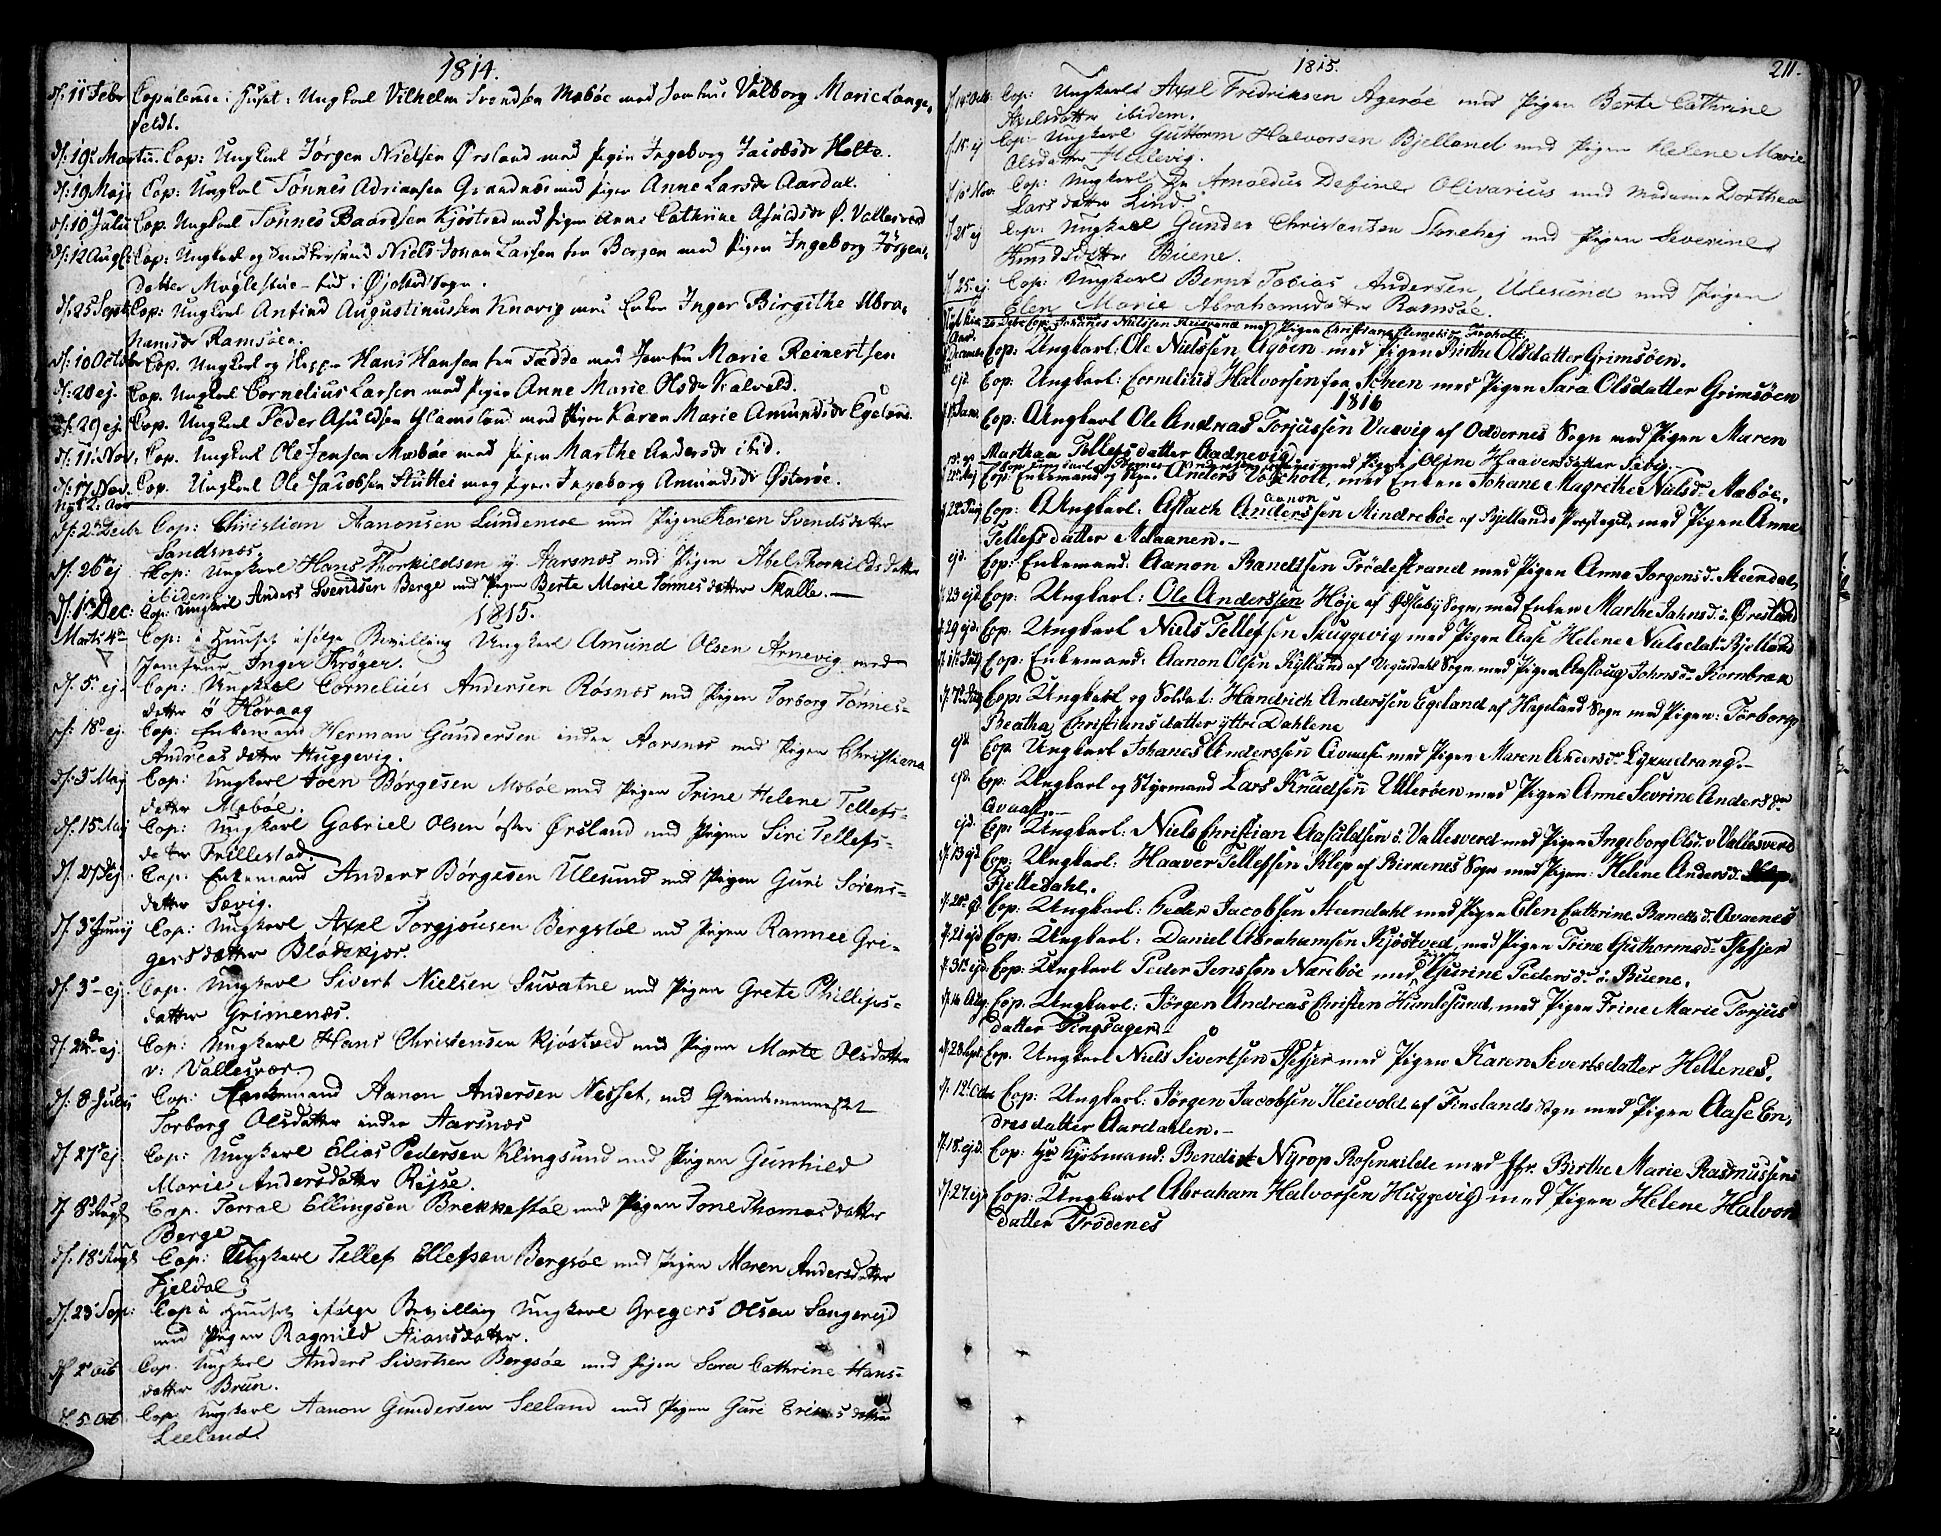 1814.
d: 11 Febr Copulerede i Huset: Ungkarl Vilhelm Svendsen Mæbøe med Jomfrue Valborg Marie Lange,
feldt.
d: 19 Martii. Cop: Ungkarl Jørgen Nielsen Ørsland med Pigen Ingeborg Jacobsdr Holte.
d: 19 Maji Cop: Ungkarl Tønnes Adriansen Grundnæs med Pigen Anne Larsdr Aardal.
d: 10 Julii Cop. Ungkarl Tønnes Baardsen Kjøstved med Pigen Anne Cathrine Asuldsdr Ø. Vallesverd
d: 12 Aug: Cop: Ungkarl og Snedkersvend Niels Johan Larsen fra Bergen med Pigen Ingeborg Jørgens
datter Møglestue i Øjestad Sogn.
d: 25 Sept: Cop: Ungkarl Anfind Augustinussen Knavig med Enken Inger Birgithe Abra,
hamsdr Ramsøen.
d: 10 October Cop. Ungkarl og Hans Hansen fra Fædde med Jomfru Marie Reinertsen
d: 20 ej. Cop. Ungkarl Cornelius Larsen med Pigen Anne Marie Olsdr Kalvald.
d. 29 ej. Cop. Ungkarl Peder Asuldsen Glamsland med Pigen Karen Marie Amundsdr Egeland
d: 11 Nov. Cop. Ungkarl Ole Jensen Mæbøe med Pigen Marthe Andersdr ibid.
d: 17 Nov. Cop. Ungkarl Ole Jacobsen Stuttei med Pigen Ingeborg Amundsdr Østerøe.
Nyt K: Aar
d: 2 Decbr Cop: Christian Aanonsen Lundemoe med Pigen Karen Svendsdatter
Sandsnæs.
d: 26 ej Cop: Ungkarl Hans Thorkildsen y. Aarsnæs med Pigen Abel Thorkildsdatter
ibidem.
d: 1 Dec: Cop: Ungkarl Anders Svendsen Berge med Pigen Berte Marie Tønnesdatter Skalle.
1815.
Marti 4 Cop: i Huuset ifølge Bevilling Ungkarl Amund Olsen Arnevig med
Jomfrue Inger Krøger.
d: 5 ej. Cop: Ungkarl Cornelius Andersen Røsnæs med Pigen Torborg Tønnes-
datter ö Høvaag
d: 18 ej. Cop: Enkemand Herman Gundersen indre Aarsnæs med Pigen Christiana
Andreasdatter Huggevig.
d: 5 Maj Cop: Ungkarl Joen Børgesen Mæbøe med Pigen Trine Helene Tellefs-
datter Mæbøe.
d. 15 Maj Cop: Ungkarl Gabriel Olsen østre Ørsland med Pigen Siri Tellefs-
datter Trillestad.
d. 27 ej Cop: Enkemand Anders Børgesen Ulesund med Pigen Guri Sørens-
datter Sævig.
d. 3 Junij Cop: Ungkarl Axel Torgjousen Bergstøl med Pigen Rannei Gri-
gersdatter Blødekjær.
d. 3 ej. Cop. Ungkarl Sivert Nielsen Suvatne med Pigen Grete Phillips-
datter Grimenæs.
d. ej. Cop: Ungkarl Hans Christensen Kjøstved med Pigen Marte Olsdatter
v: Vallesvær.
d: 8 Julij Cop: Enkemand Aanon Andersen Nesset, med
Torborg Olsdatter indre Aarsnæs
d. 27 ej. Cop: Ungkarl Elias Pedersen Klingsund med Pigen Gunhild
Marie Andersdatter Rejse.
d. 8 Augt Cop. Torral Ellingsen Brekkestøl med Pigen Tone Thomasdatter
Berge
d. 18 Augt Cop: Ungkarl Tellef Ellefsen Bergsøe med Pigen Maren Andersdatter
Fjeldal
d. 23 Sep: Cop i Huuset ifølge Bevilling Ungkarl Gregers Olsen Sangereid
med Pigen Ragnild Stiansdatter.
d. 2 Oct Cop. Ungkarl Anders Sivertsen Bergsøe med Pigen Sara Cathrine Hans-
datter Brun.
d. 5 Oct Cop: Ungkarl Aanon Gundersen Seeland med Pigen Guri datter
Seeland.
1815.
211.
Cop: Ungkarl Axel Fredriksen Agerøe med Pigen Berte Cathrine
Axelsdatter ibidem.
d. 15 ej Cop: Ungkarl Guttorm Halvorsen Bjelland med Pigen Helene Marie
Olsdatter Hellevig.
Nov. Cop: Ungkarl Hr Arnoldus Definer Olivarius med Madame Dorthea
Larsdatter Lind.
d. 21 ej Cop: Ungkarl Gunder Christensen Stenehej med Pigen Severine
Knudsdatter Buene.
d. 25. ej. Cop: Ungkarl Bernt Tobias Andersen Ulesund med Pigen
Elen Marie Abrahamsdatter Ramsøe.
Nyt Kirke Aar. Cop: Johanes Nielssen med Pigen Christiane
Cop: Ungkarl: Ole Nielssen Agøen med Pigen Birthe Olsdatter Grimsøen.
ejd. Cop: Ungkarl: Cornelius Halvorsen fra Scheen med Pigen Sara Olsdatter Grimsøen
1816
Jan. Cop: Ungkarl Ole Andreas Torjussen Vaavig af Oddernes Sogn med Pigen Maren
Marthea Tellefsdatter Aadnevig
med Pigen Olene Haavorsdatter Sævig.
Cop: Enkemand Anders med Enken Johane Magrethe Nielsd. Mæbøe.
Aanon
Cop: Ungkarl: Aslach Anderssen Mindrebøe af Bjellands Præstegield, med Pigen Anne
Tellefsdatter Aalaanen.
ejd. Cop: Enkemand. Aanon Bandtsen Trødestrand med Pigen Anne Jørgensd. Steendal,
23 ejd. Cop: Ungkarl: Ole Anderssen Høje af Sogn, med Enken Marthe Jahnsd. ö. Øresland
29 ejd. Cop. Ungkarl Niels Tellefsen Skuggevig med Pigen Aase Helene Nielsdat. Bjelland
Cop: Enkemand: Aanon Olsen Kyllland af Vegusdahl Sogn med Pigen Aaslaug Johnsd. Kornbræn
Cop: Ungkarl og Soldat: Handrich Anderssen Egeland af Hægeland Sogn med Pigen: Torborg
Beatha Christiansdatter yttre Dahlene
ejd. Cop Ungkarl Johanes Anderssen Avaasse med Pigen Maren Andersdr Lynudrang.
ejd. Cop: Ungkarl og Styrmand Lars Knudsen Ullerøen med Pigen Anne Sevrine Andersdr
Avaasse
ejd. Cop: Ungkarl: Niels Christian Aasuldsen ö. Vallesverd med Pigen Ingeborg Olsd. v. Vallesverd
13 ejd Cop: Ungkarl: Haaver Tellefssen Klep af Birkenes Sogn med Pigen: Helene Andersd.
Fjelledahl.
Cop: Ungkarl: Peder Jacobsen Steendahl med Pigen Elen Cathrine Bandtsd. Avaenes
21 ejd Cop: Ungkarl: Daniel Abrahamsen Kjøstved, med Pigen Trine Guthormsd.
31 ejd. Cop: Ungkarl Peder Jenssen Narebøe med Pigen Gurine Pedersd. ö. Buene.
Cop. Ungkarl: Jørgen Andreas Christen Humlesund, med Pigen Trine Marie Torjus
datter Tingsager.
Cop. Ungkarl Niels Sivertsen med Pigen Karen Sivertsdatter Hellenes.
d. 12 Cop: Ungkarl: Jørgen Jacobsen Heievold af Finslands Sogn med Pigen Aase En,
dresdatter Aardahlen.
18 ejd. Cop: Hr Kjøbmand: Bendix Nyrop Rosenkilde med Jfr. Birthe Marie Rasmussens
27 ejd Cop: Ungkarl Abraham Halvorsen Huggevig med Pigen Helene Halvors
datter Trødenes